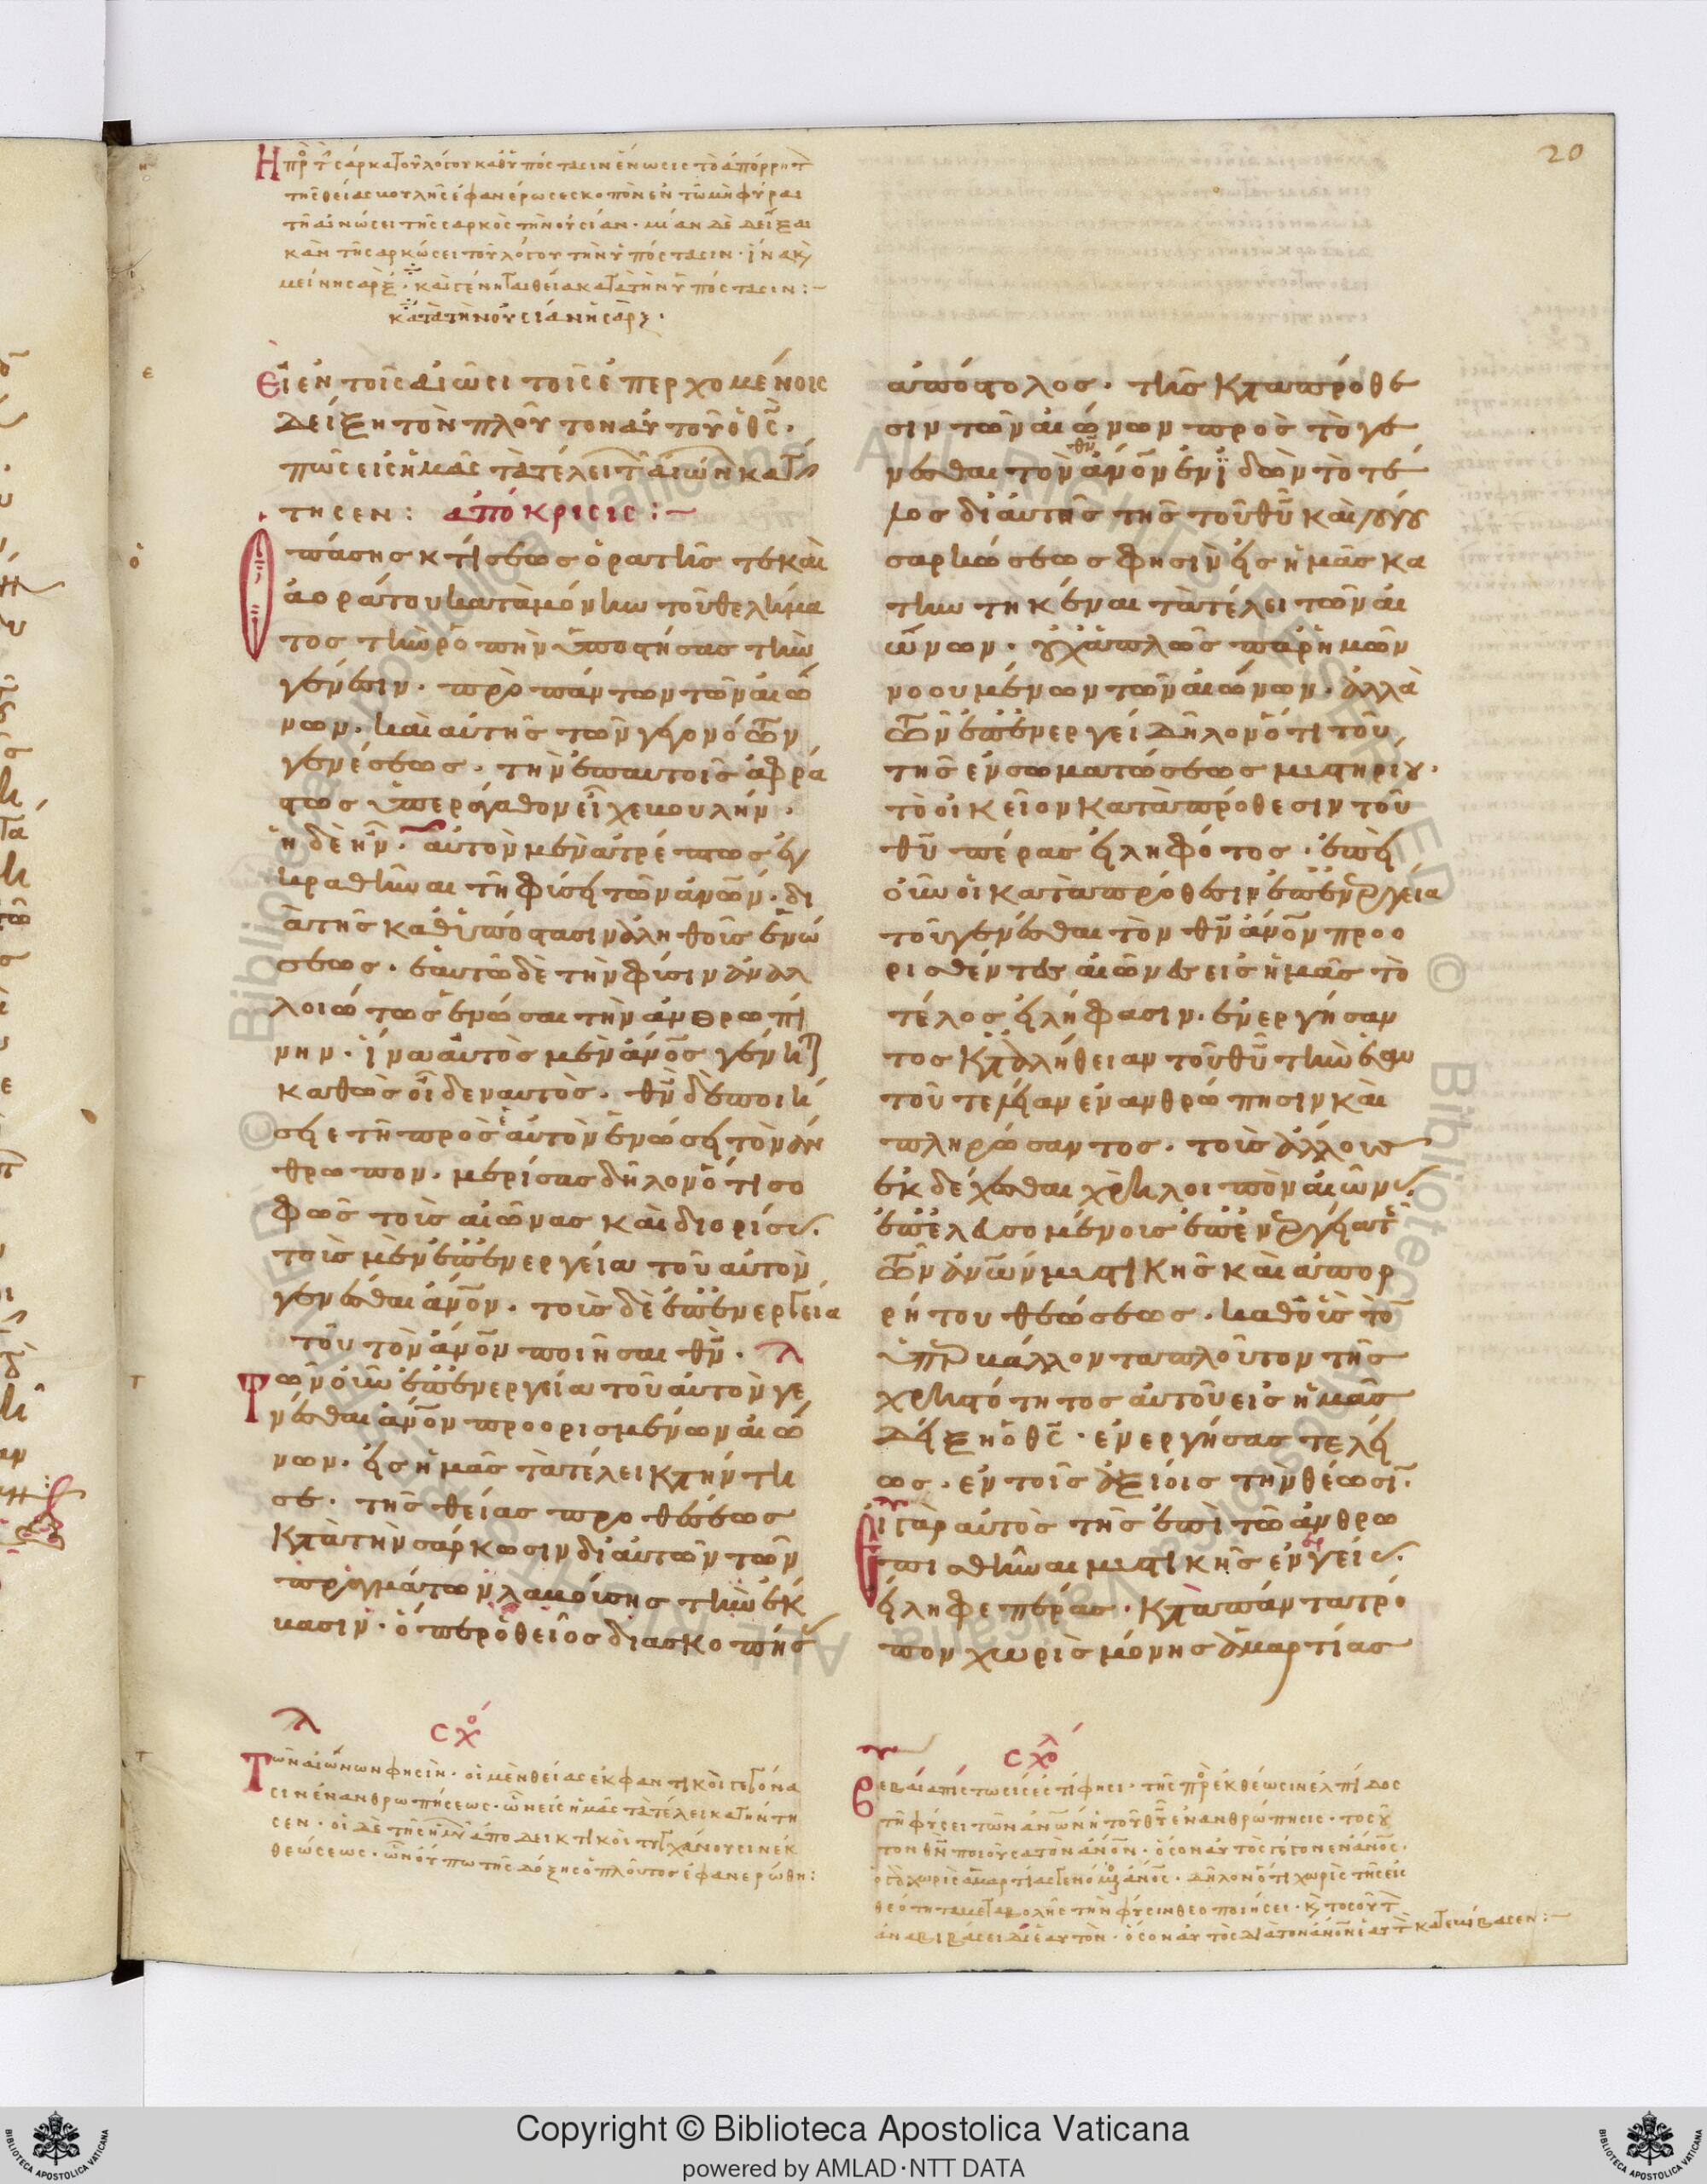 20
Ἡ πρὸς τὴν σάρκα τοῦ λόγου καθ' ὑπόστασιν ἕνωσις τὸ ἀπόρρητ
τῆς θείας βουλῆς ἐφανέρωσε σκοπὸν ἐν τῷ μὴ φύραι
τῇ ἑνώσει τῆς σαρκὸς τὴν οὐσίαν· μίαν δὲ δεῖξαι
κἂν τῇ σαρκώσει τοῦ λόγου τὴν ὑπόστασιν· ἵνα κ̣
μείνῃ σὰρξ· καὶ γένηται θεία κατὰ τὴν ὑπόστασιν:~
κατὰ τὴν οὐσίαν ἡ σάρξ·
Εἰ ἐν τοῖς αἰῶσι τοῖς ἐπερχομένοις
δείξει τὸν πλοῦτον αὐτοῦ ὁ θς·
πῶς εἰς ἡμᾶς τὰ τέλει τῶν αἰώνων κατήν
τησεν: ἀπόκρισις:~
Ὁ πάσης κτίσεως ὁρατῆς τε καὶ
ἀοράτου κατὰ μόνην τοῦ θελήμα
τος τὴν ῥοπὴν ὑποστήσας τὴν
γένεσιν· πρὸ πάντων τῶν αἰώ
νων· καὶ αὐτῆς τῶν γεγονότων
γενέσεως· τὴν ἐπ αὐτοῖς ἀφρά
στως ὑπεράγαθον εἶχε βουλήν·
ἡ δὲ ἦν· αὐτὸν μὲν ἀτρέπτως ἐγ
κραθῆναι τῇ φύσει τῶν ἀνων· δι
ὰ τῆς καθ' ὑπόστασιν ἀληθοῦς ἑνώ
σεως· ἑαυτῷ δὲ τὴν φύσιν ἀναλ
λοιώτως ἑνῶσαι τὴν ἀνθρωπί
νην· ἵν' αὐτὸς μὲν ἀνος γένηται
καθὼς οἶδεν αὐτὸς· θν δὲ ποιή
σειε τῇ πρὸς ἑαυτὸν ἑνώσει τὸν ἄν
θρωπον· μερίσας δηλονότι σο
φῶς τοὺς αἰῶνας καὶ διορίσας
τοὺς μὲν ἐπ' ἐνεργείᾳ τοῦ αὐτὸν
γενέσθαι ἀνον· τοὺς δὲ ἐπ' ἐνεργείᾳ
τοῦ τὸν ἀνον ποιῆσαι θν·
Τῶν οὖν ἐπ' ἐνεργείᾳ τοῦ αὐτὸν γε
νέσθαι ἀνον προορισμένων αἰώ
νων· εἰς ἡμᾶς τὰ τέλει κατήντη
σε· τῆς θείας προθέσεως
κατὰ τὴν σάρκωσιν δι' αὐτῶν τῶν
πραγμάτων λαβούσης τὴν ἔκ
βασιν· ὅπερ ὁ θεῖος διασκοπήσας
ἀπόστολος· τῆς κατὰ πρόθε
σιν τῶν αἰώνων πρὸς τὸ γε
νέσθαι τὸν θν ἀνον ἐνιδὼν τὸ τέ
λος δι' αὐτῆς τῆς τοῦ θυ καὶ λόγου
σαρκώσεως φησὶν εἰς ἡμᾶς κα
τηντηκέναι τὰ τέλει τῶν αἰ
ώνων· οὐχ ἁπλῶς παρ' ἡμῶν
νοουμένων τῶν αἰώνων· ἀλλὰ
τῶν ἐπ' ἐνεργείᾳ δηλονότι τοῦ
τῆς ἐνσωματώσεως μυστηρίου·
τὸ οἰκεῖον κατὰ πρόθεσιν τοῦ
θυ πέρας εἰληφότος· ἐπεὶ
οὖν οἱ κατὰ πρόθεσιν ἐπ' ἐνεργείᾳ
τοῦ γενέσθαι τὸν θν ἀνον προο
ρισθέντες αἰῶνες εἰς ἡμᾶς τὸ
τέλος εἰλήφασιν· ἐνεργήσαν
τος κατ' ἀλήθειαν τοῦ θυ τὴν ἑαυ
τοῦ τελείαν ἐνανθρώπησιν καὶ
πληρώσαντος· τοὺς ἄλλους
ἐκδέχεσθαι χρὴ λοιπὸν αἰῶνας
ἐπελευσομένους ἐπ' ἐνεργείᾳ τῆς
τῶν ἀνων μυστικῆς καὶ ἀπορ
ρήτου θεώσεως· καθ' οὓς τὸν
ὑπερβάλλοντα πλοῦτον τῆς
χρηστότητος αὐτοῦ εἰς ἡμᾶς
δείξει ὁ θς· ἐνεργήσας τελεί
ως· ἐν τοῖς ἀξίοις τὴν θέωσιν·
Εἰ γὰρ αὐτὸς τῆς ἐπὶ τῷ ἀνθρω
πισθῆναι μυστικῆς ἐνεργείας
εἴληφε πέρας· κατὰ πάντα τρό
πον χωρὶς μόνης ἁμαρτίας
σχο
Τῶν αἰώνων φησὶν· οἱ μὲν θείας ἐκφαντικοὶ γεγόνα
σιν ἐνανθρωπήσεως· ὧν εἰς ἡμᾶς τὰ τέλει κατήντη
σεν· οἱ δὲ τῆς ἡμῶν ἀποδεικτικοὶ τυγχάνουσιν ἐκ
θεώσεως· ὧν οὔπω τῆς δόξης ὁ πλοῦτος ἐφανερώθη:
σχολ
Βεβαία πίστωσίς ἐστί φησι· τῆς πρὸς ἐκθέωσιν ἐλπίδος
τῇ φύσει τῶν ἀνων ἡ τοῦ θυ ἐνανθρώπησις· τοσοῦ
τον θν ποιοῦσα τὸν ἀνον· ὅσον αὐτὸς γέγονεν ἀνος·
ὁ γὰρ χωρὶς ἁμαρτίας γενόμενος ἀνος· δηλονότι χωρὶς τῆς εἰς
θεότητα μεταβολῆς τὴν φύσιν θεοποιήσει· κ̣ τοσοῦτ
ἀναβιβάσει δι' ἑαυτὸν· ὅσον αὐτὸς διὰ τὸν ἀνον ἑαυτ κατεβίβασεν:~
© Biblioteca Apostolica Vaticana ALL RIGHTS RESERVED
Copyright © Biblioteca Apostolica Vaticana
powered by AMLAD·NTT DATA